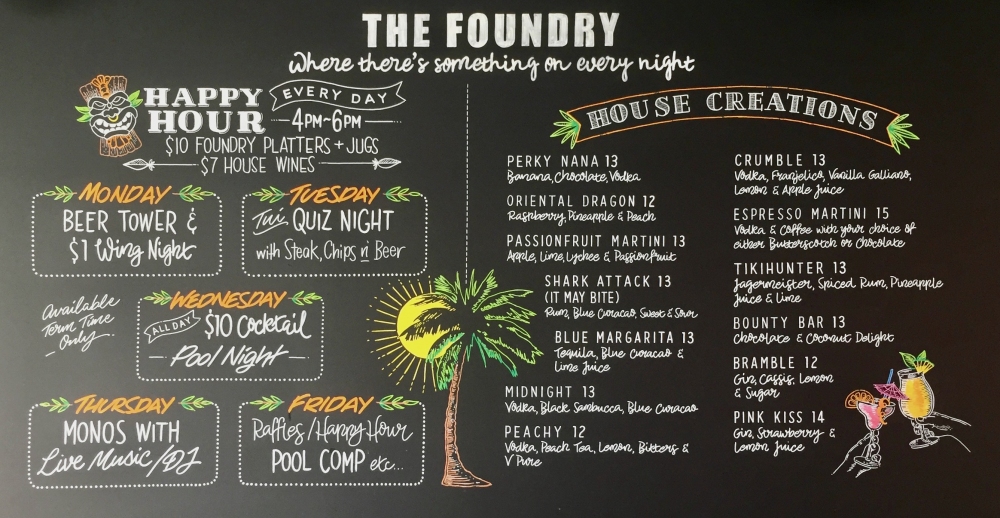 THE FOUNDRY
where there's something on every night
HAPPY
HOUR
EVERY DAY
4PM~6PM
$10 FOUNDRY PLATTERS + JUGS
$7 HOUSE WINES
MONDAY
BEER TOWER &
$1 Wing Night
TUESDAY
Tui QUIZ NIGHT
with Steak, Chips n Beer
Available
Term Time
Only
WEDNESDAY
ALL DAY $10 Cocktail
Pool Night
THURSDAY
MONOS WITH
Live Music/DJ
FRIDAY
Raffles/Happy Hour
POOL COMP etc...
HOUSE CREATIONS
PERKY NANA 13
Banana, Chocolate, Vodka
ORIENTAL DRAGON 12
Raspberry, Pineapple & Peach
PASSIONFRUIT MARTINI 13
Apple, Lime, Lychee & Passionfruit
SHARK ATTACK 13
(IT MAY BITE)
Rum, Blue Curacao, Sweet & Sour
BLUE MARGARITA 13
Tequila, Blue Curacao &
Lime Juice
MIDNIGHT 13
Vodka, Black Sambucca, Blue Curacao
PEACHY 12
Vodka, Peach Tea, Lemon, Bitters &
V Pure
CRUMBLE 13
Vodka, Franjelico, Vanilla Galliano,
Lemon & Apple Juice
ESPRESSO MARTINI 15
Vodka & Coffee with your choice of
either Butterscotch or Chocolate
TIKIHUNTER 13
Jagermeister, Spiced Rum, Pineapple
Juice & Lime
BOUNTY BAR 13
Chocolate & Coconut Delight
BRAMBLE 12
Gin, Cassis, Lemon
& Sugar
PINK KISS 14
Gin, Strawberry &
Lemon Juice